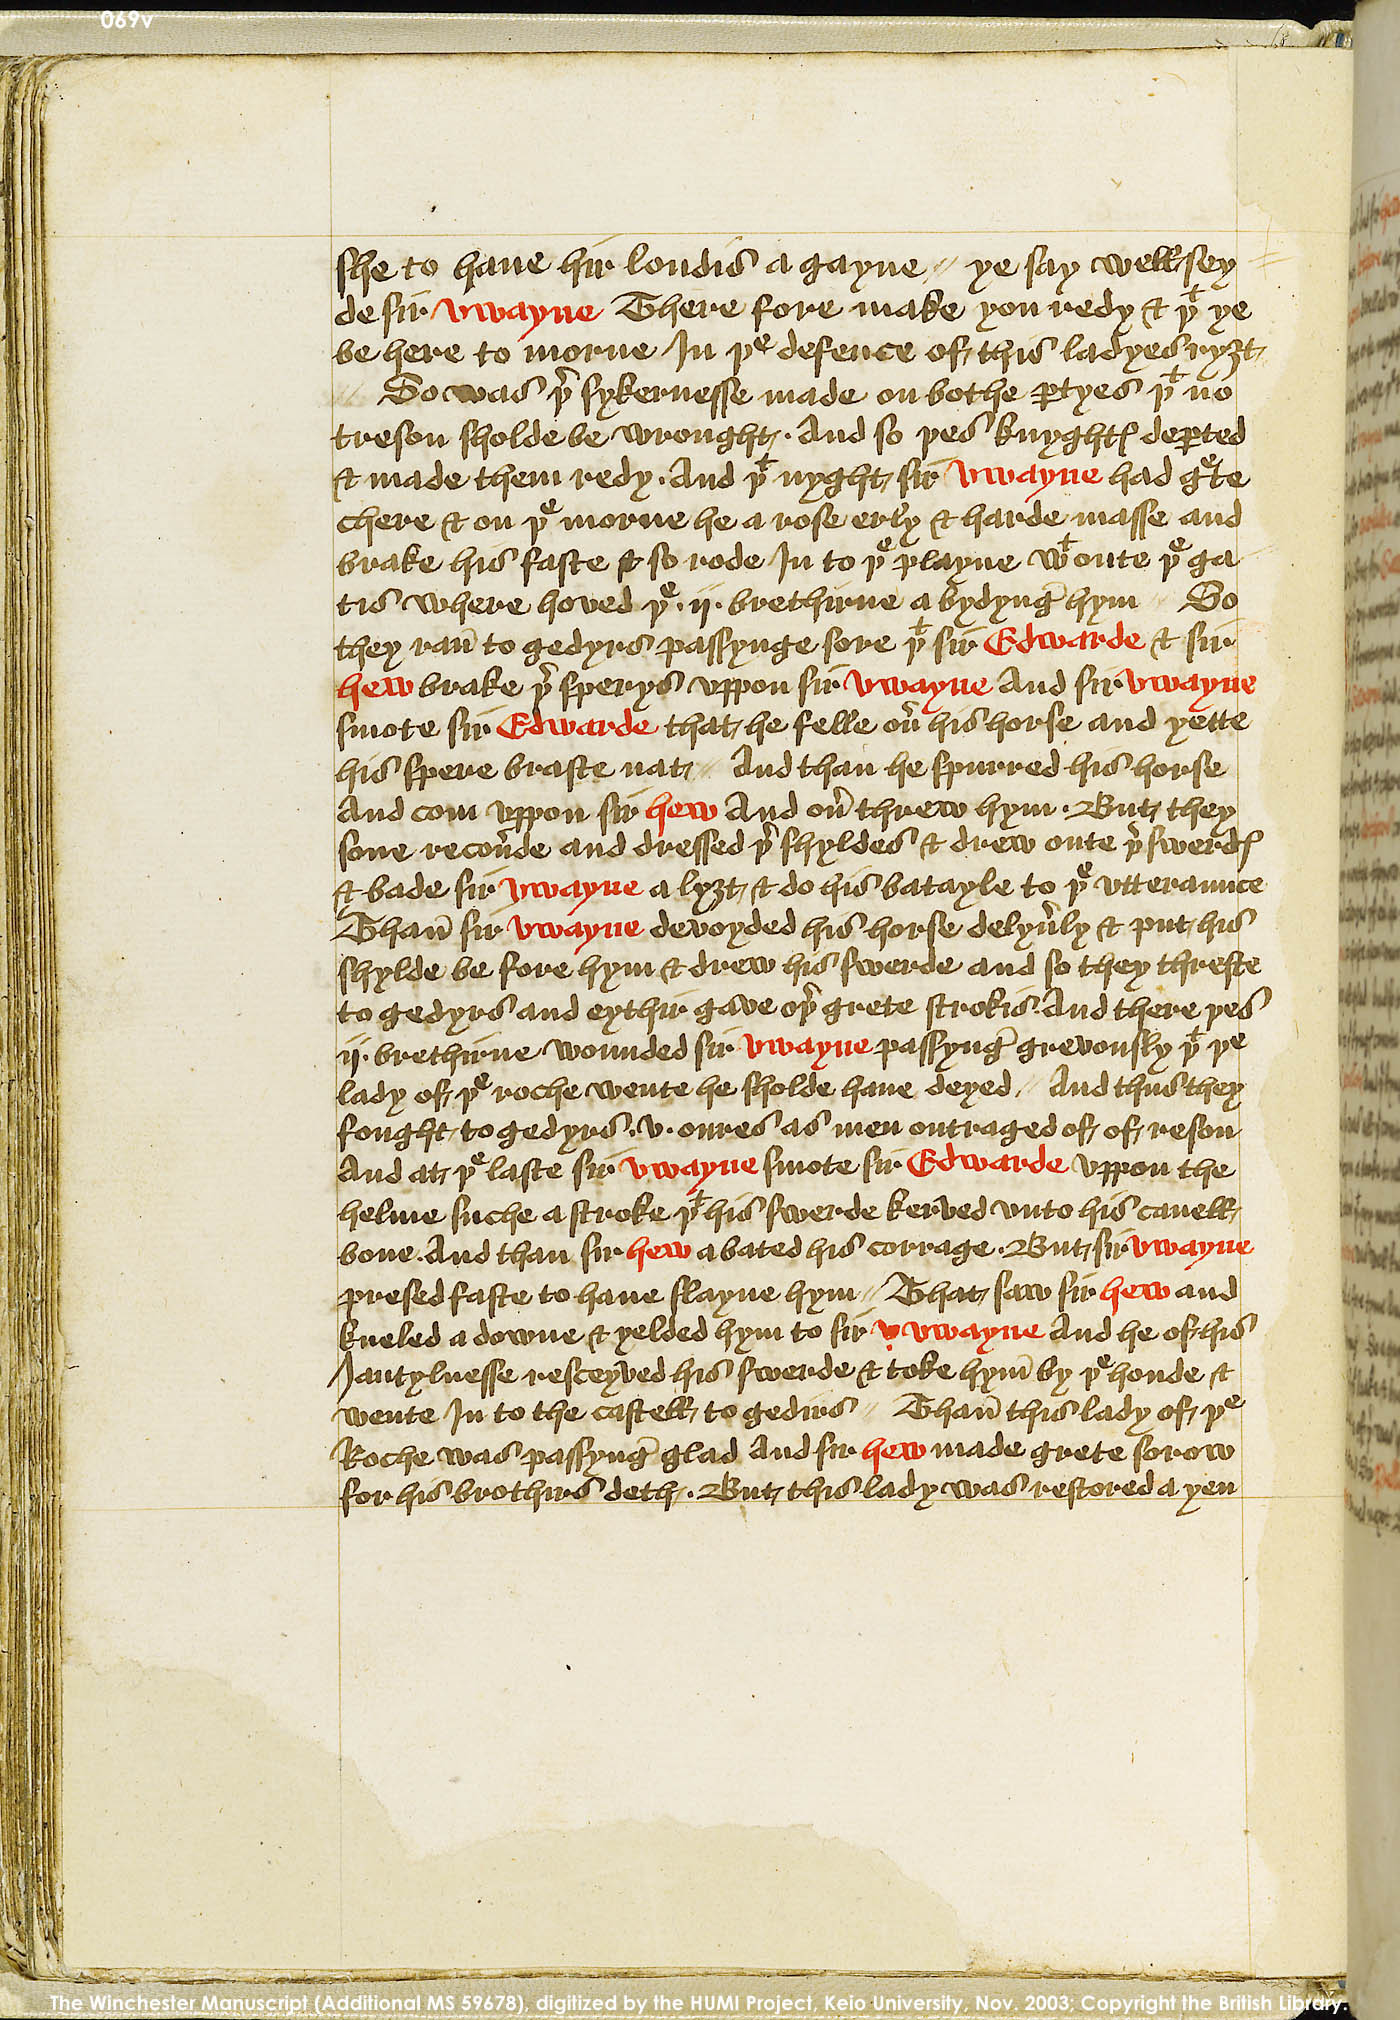 069v
she to haue hir londis a gayne // ye say well sey
de sir vwayne There fore make you redy & þᵗ ye
be here to morne In þᵉ defence of this ladyes ryȝt
// So was þr̃ sykernesse made on bothe ꝑtyes þᵗ no
treson sholde be wrought · And so þes knyghtꝭ deꝑted
& made them redy · And þᵗ nyght sir vwayne had gᵉte
chere & on þᵉ morne he a rose erly & harde masse and
brake his faste & so rode In to þᵉ playne wᵗ oute þᵉ ga
tis where hoved þᵉ · ij · brethirne a bydyng̃ hym // So
they rañ to gedyrs passynge sore þᵗ sir Edwarde & sir
hew brake þr̃ sperys vppon sir vwayne And sir vwayne
smote sir Edwarde that he felle oũ his horse and yette
his spere braste nat // And than he spurred his horse
And com vppon sir hew And oũ threw hym · But they
sone recoũde and dressed þr̃ shyldes & drew oute þr̃ swerdꝭ
& bade sir vwayne a lyȝt & do his batayle to þᵉ vtteraunce
Thañ sir vwayne devoyded his horse delyũly & put his
shylde be fore hym & drew his swerde and so they threste
to gedyrs and eythir gave oþr̃ grete strokis · And there þes
ij · brethirne wounded sir vwayne passyng̃ grevously þᵗ þᵉ
lady of þᵉ roche wente he sholde haue deyed // And thus they
fought to gedyrs · v · oures as men outraged of of reson
And at þᵉ laste sir vwayne smote sir Edwarde vppon the
helme suche a stroke þᵗ his swerde kerved vnto his canell
bone · And than sir hew abated his corrage · But sir vwayne
presed faste to haue slayne hym // That saw sir hew and
kneled a downe & yelded hym to sir v vwayne And he of his
Jantylnesse resceyved his swerde & toke hym̃ by þᵉ honde &
wente In to the castell to gedirs // Thañ this lady of þᵉ
Roche was passyng̃ glad And sir hew made grete sorow
for his brothirs deth · But this lady was restored a yen
The Winchester Manuscript (Additional MS 59678), digitized by the HUMI Project, Keio University, Nov. 2003; Copyright the British Library.